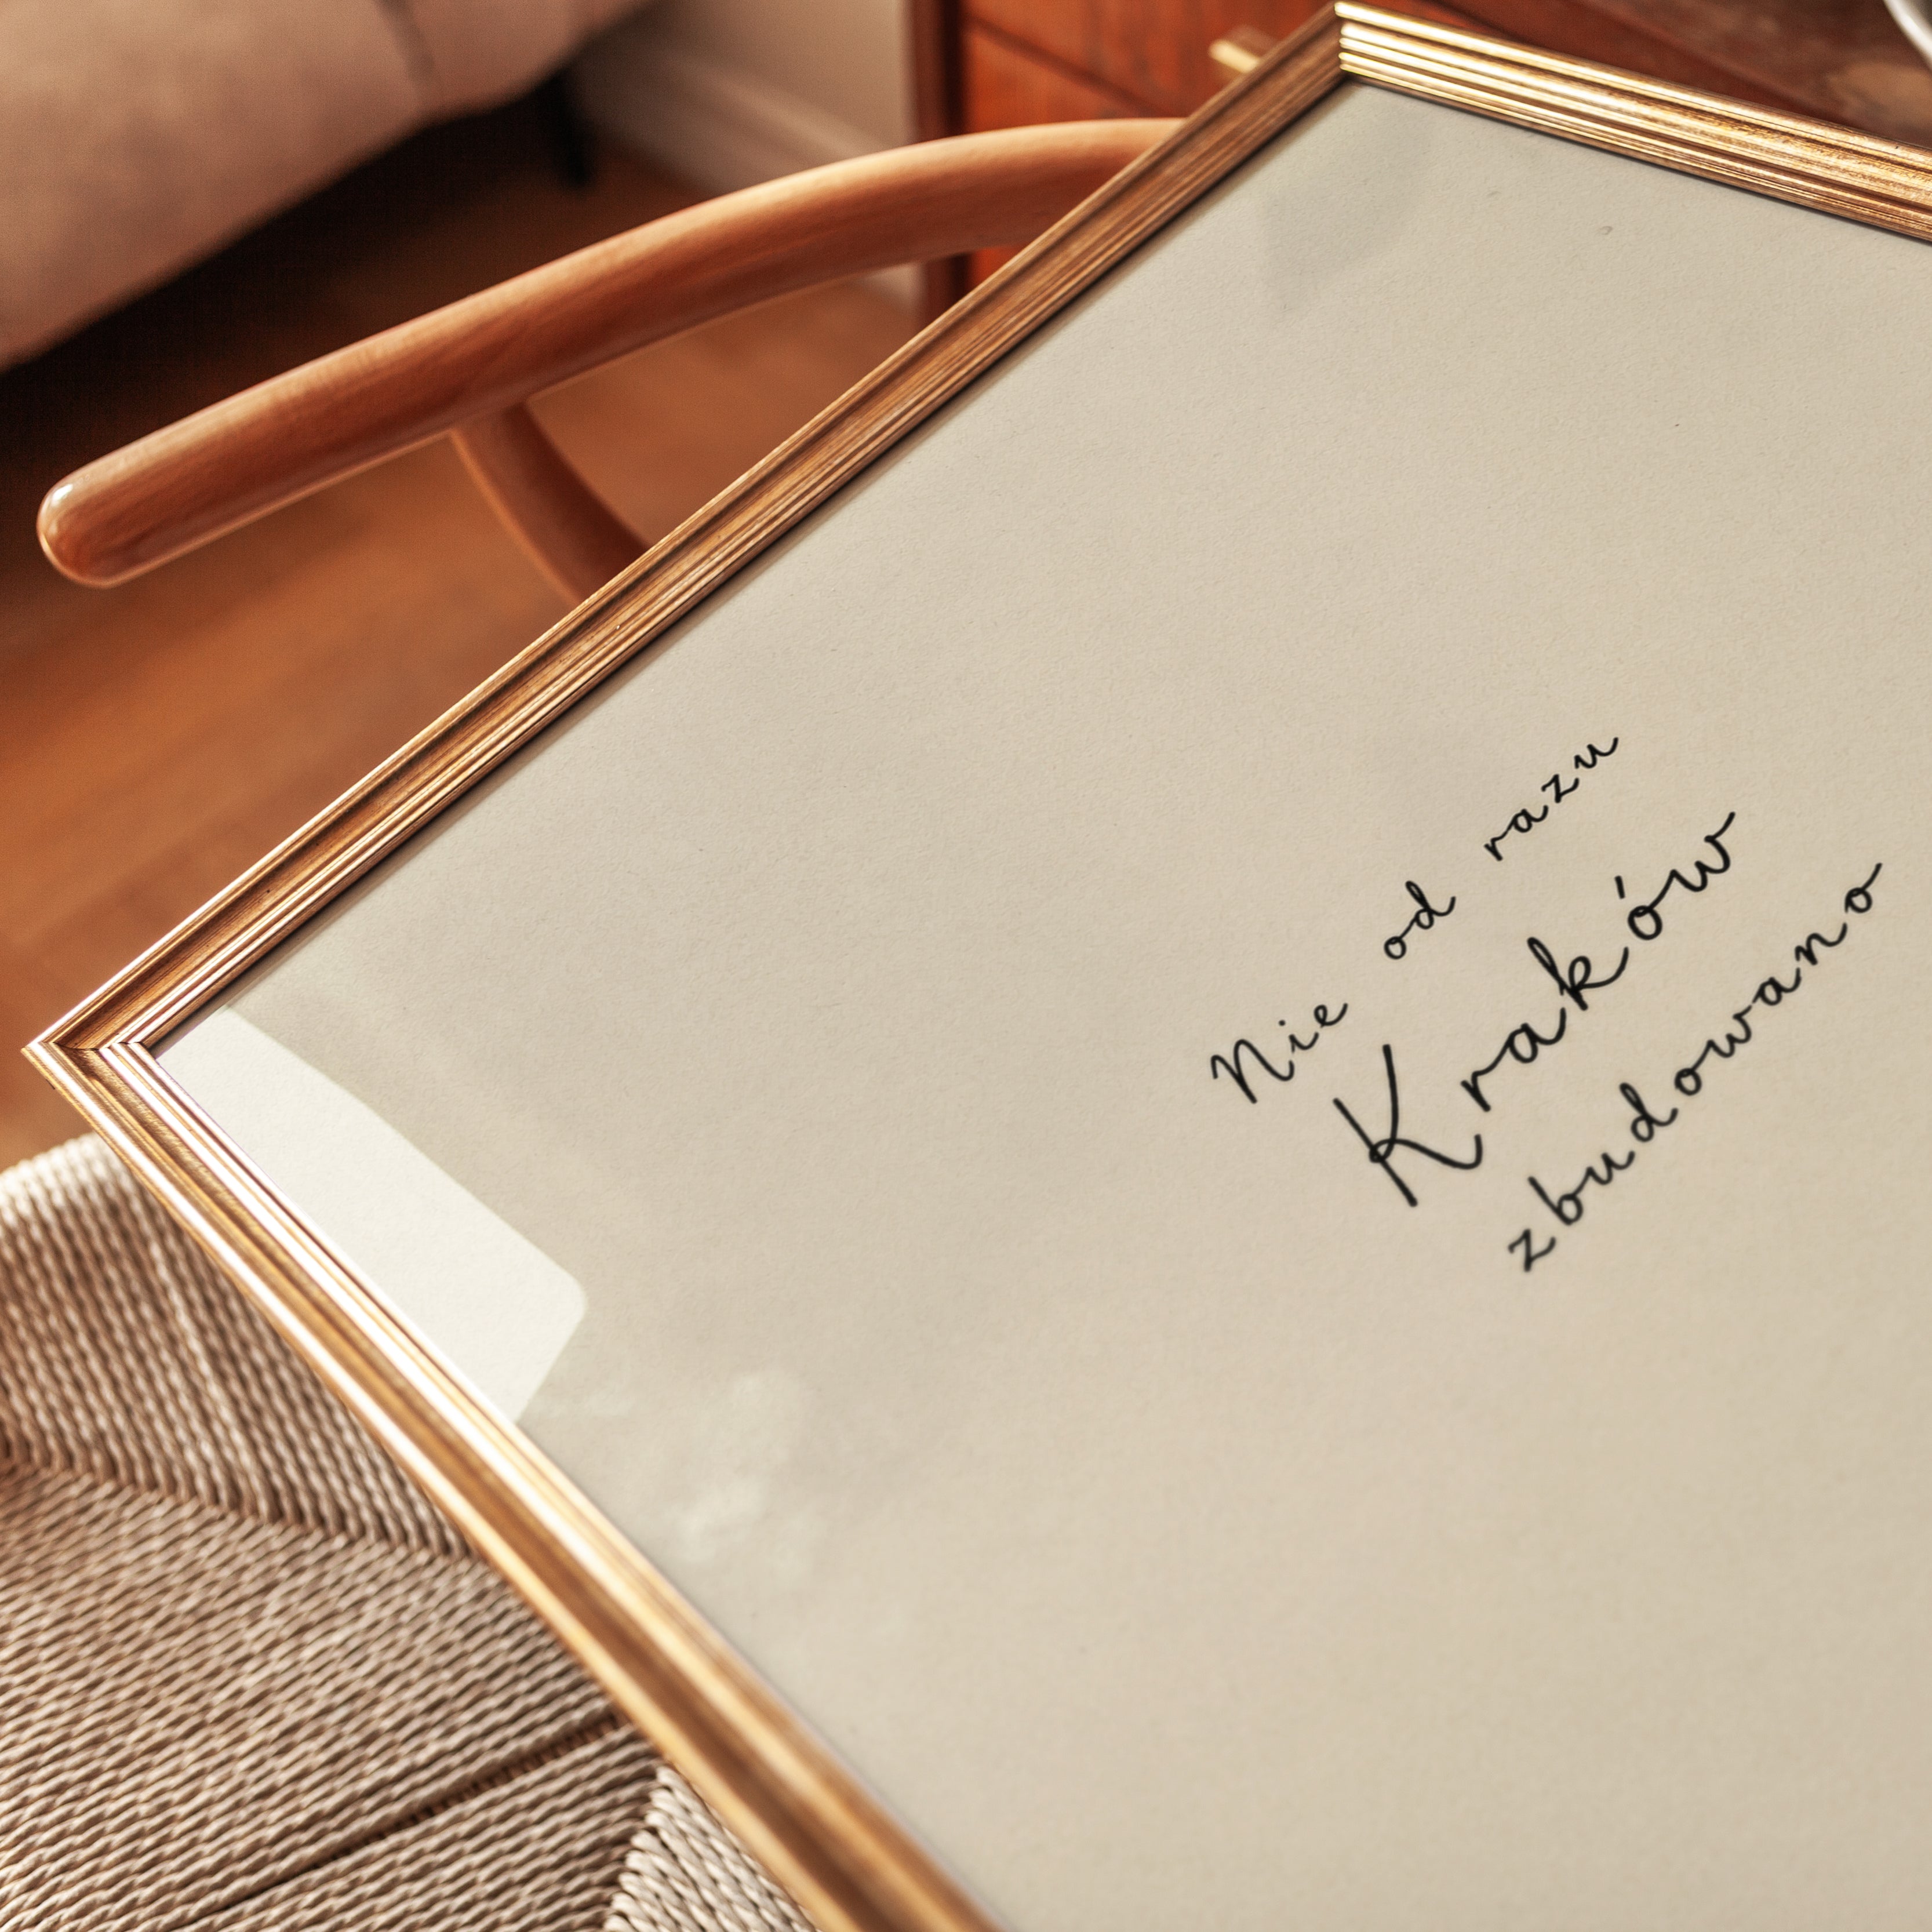 Nie od razu
Kraków
zbudowano